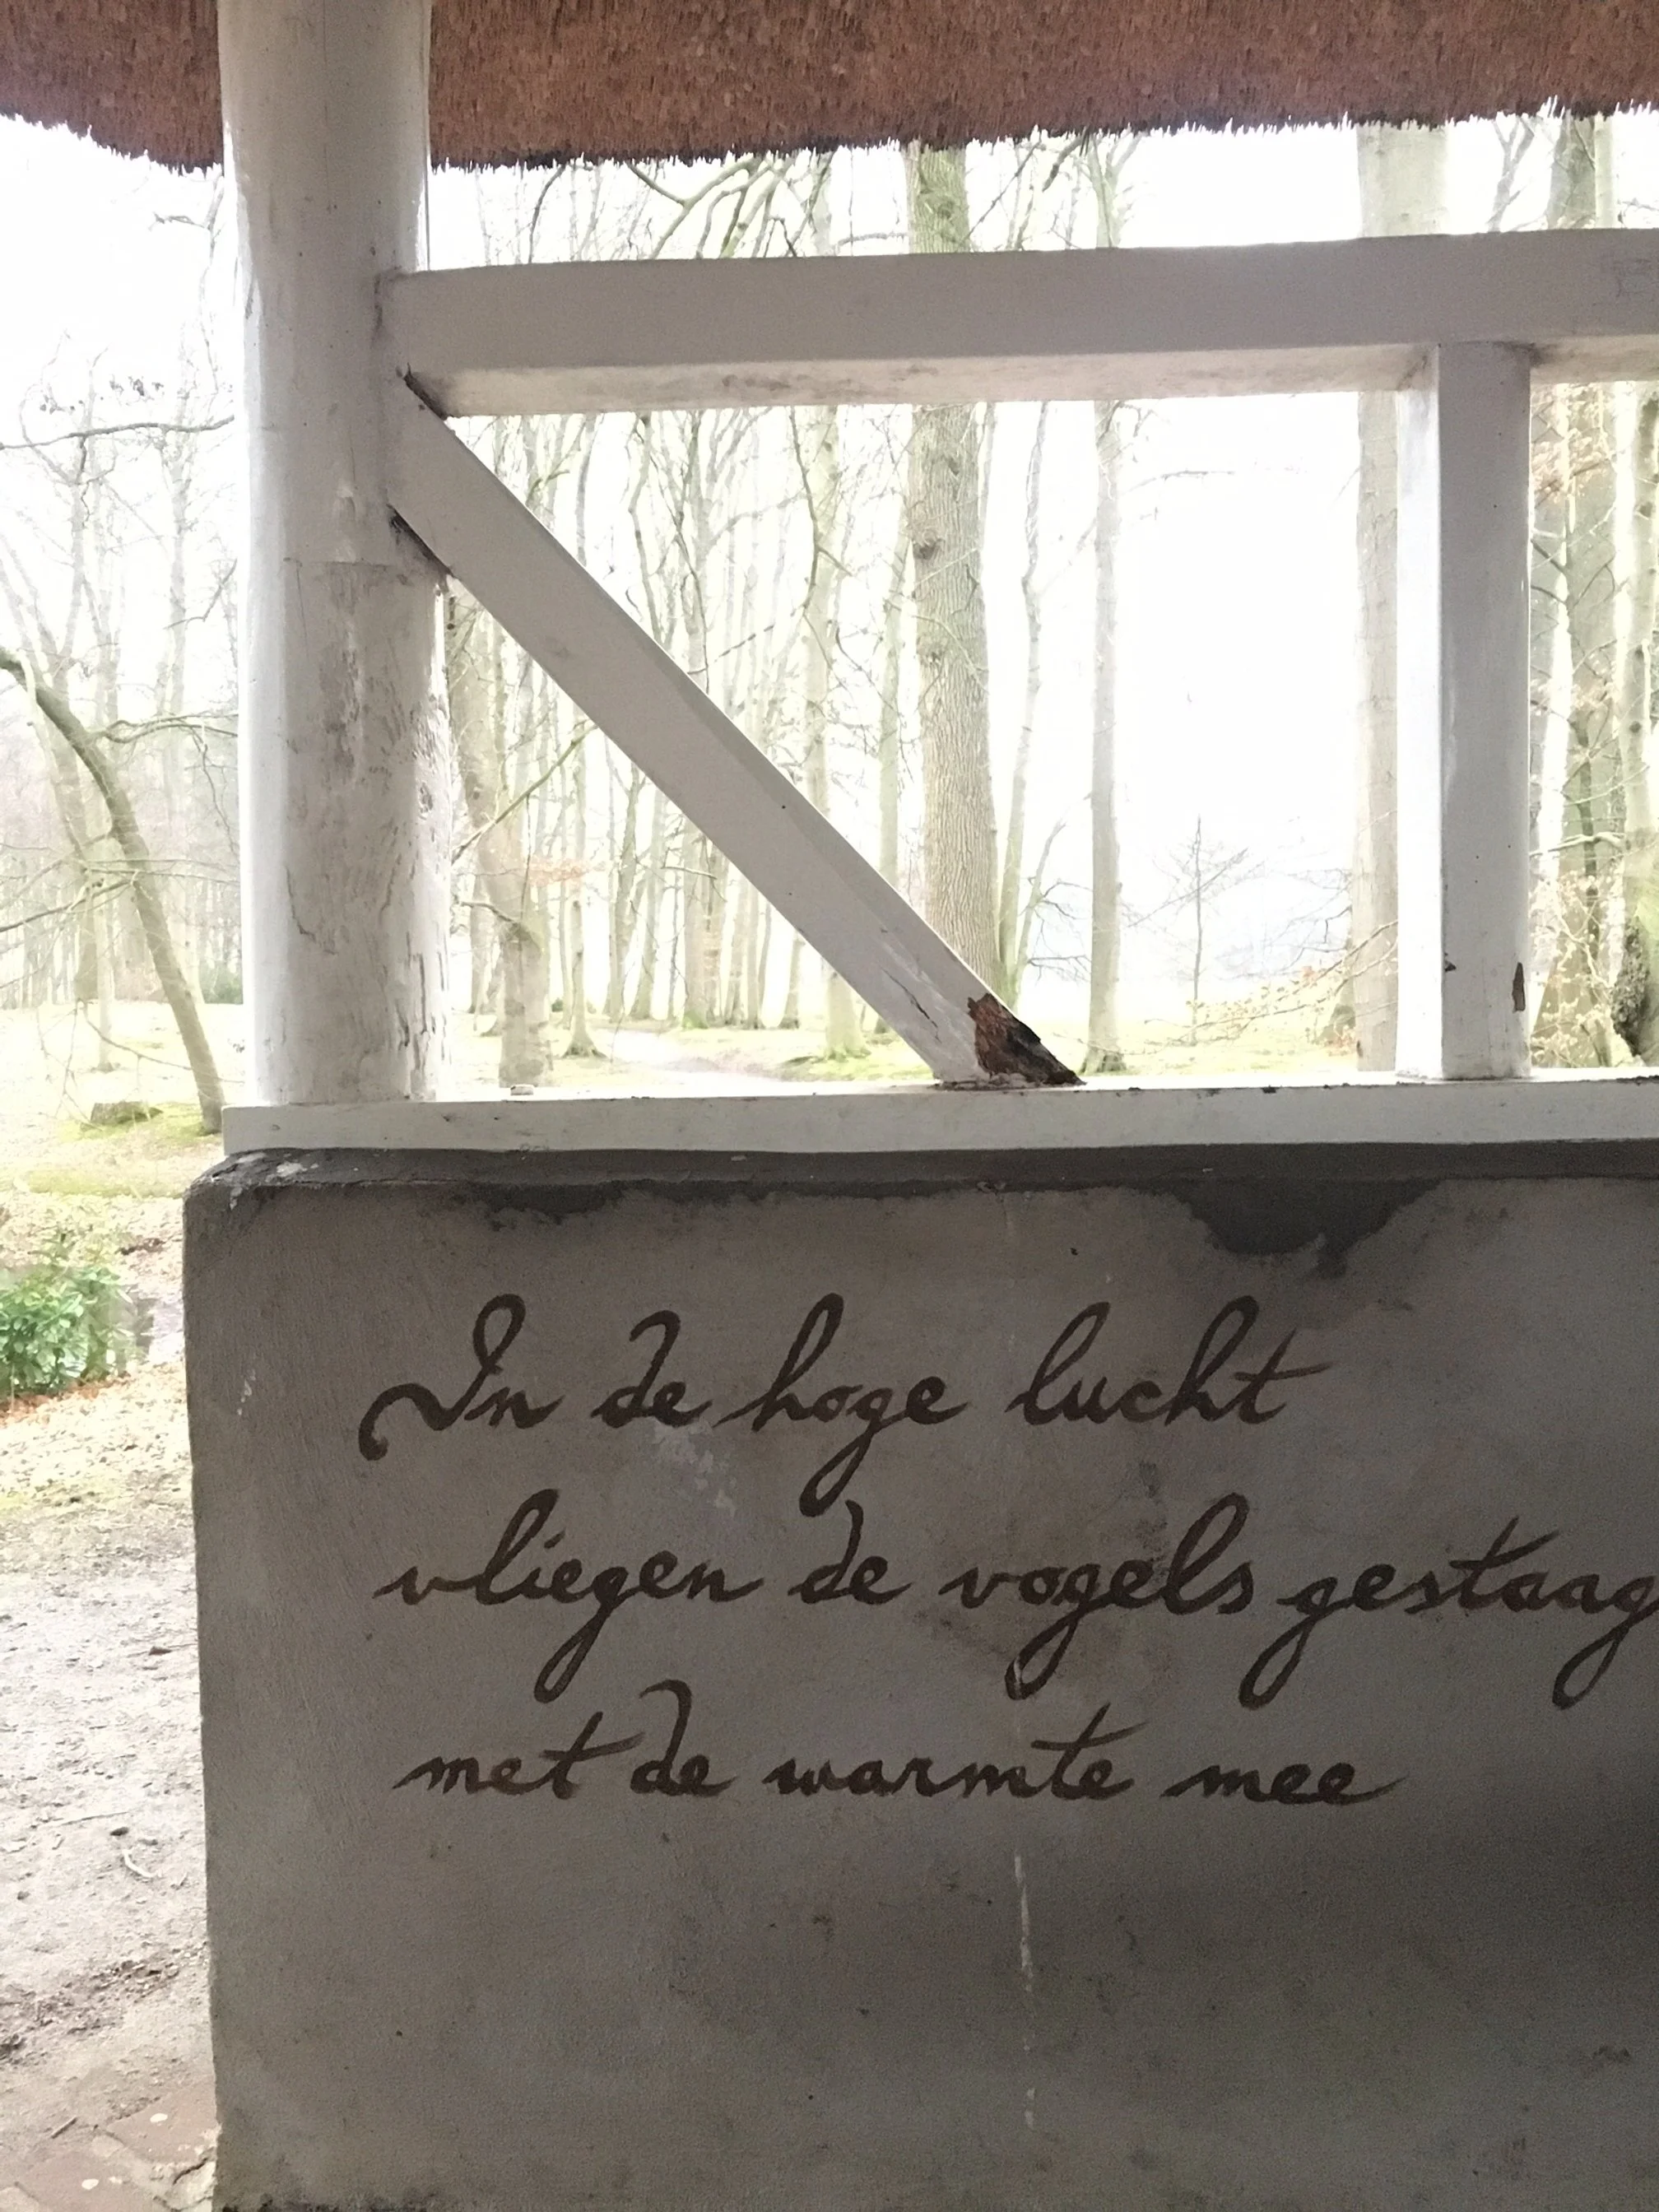 In de hoge lucht
vliegen de vogels gestaag
met de warmte mee